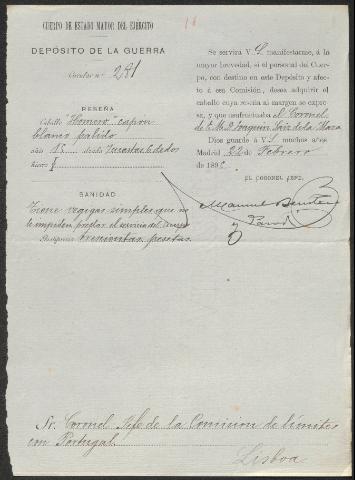 CUERPO DE ESTADO MAYOR DEL EJERCITO
DEPÓSITO DE LA GUERRA
Circular nº 281
RESEÑA
Caballo "Homero" capon
blanco palido
años 15 alzada 7 cuartas 6 dedos
hierro
SANIDAD
Tiene vegigas simples que no
le impiden prestar el servicio del Cuerpo
trescientas pesetas
16
Se servirá V.S. manifestarme, á la
mayor brevedad, si el personal del Cuer-
po, con destino en este Depósito y afecto
á esa Comisión, desea adquirir el
caballo cuya reseña al margen se expre-
sa, y que usufructuaba el Coronel
de E.M. D. Joaquin de la Llave
Dios guarde á V.S. muchos años
Madrid 22 de Febrero
de 189
EL CORONEL JEFE,
Manuel Benitez
y Parodi
Sr. Coronel Jefe de la Comision de límites
con Portugal
Lisboa